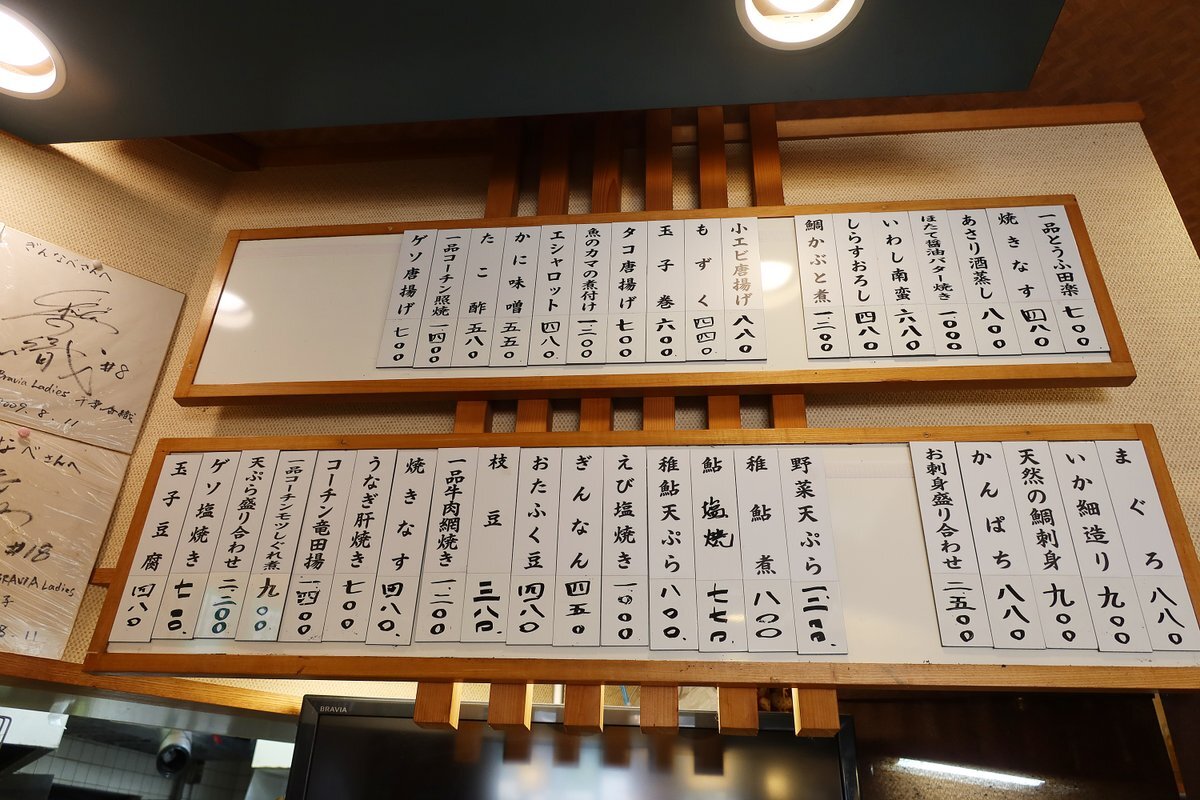 一品とうふ田楽 七〇〇
焼きなす 四八〇
あさり酒蒸し 八〇〇
ほたて醤油バター焼き 一〇〇〇
いわし南蛮 六八〇
しらすおろし 四八〇
鯛かぶと煮 一二〇〇
小エビ唐揚げ 八八〇
もずく 四四〇
玉子巻 六〇〇
タコ唐揚げ 七〇〇
魚のカマの煮付け 一二〇〇
エシャロット 四八〇
かに味噌 五五〇
たこ酢 五八〇
一品コーチン照焼 一四〇〇
ゲソ唐揚げ 七〇〇
まぐろ 八八〇
いか細造り 九〇〇
天然の鯛刺身 九〇〇
かんぱち 八八〇
お刺身盛り合わせ 二五〇〇
野菜天ぷら
稚鮎煮 八〇〇
鮎塩焼 七七〇
稚鮎天ぷら 八〇〇
えび塩焼き
ぎんなん 四五〇
おたふく豆 四八〇
枝豆 三八〇
一品牛肉網焼き 一二〇〇
焼きなす 四八〇
うなぎ肝焼き 七〇〇
コーチン竜田揚 一四〇〇
一品コーチンモツしぐれ煮 九〇〇
天ぷら盛り合わせ 二二〇〇
ゲソ塩焼き 七〇〇
玉子豆腐 四八〇
ぎんなべさんへ
#8
Bravia Ladies
2009.8.11
なべさんへ
#18
BRAVIA Ladies
8.11
BRAVIA